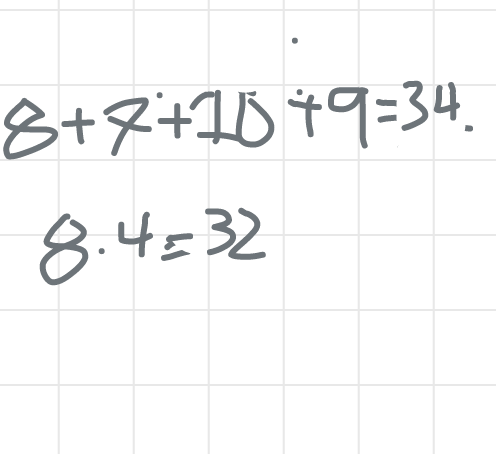 8+7+10+9=34.
8.4=32